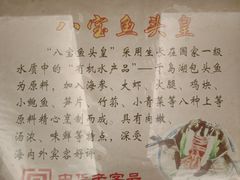 八宝鱼头皇
"八宝鱼头皇"采用生长在国家一级
水质中的"有机水产品"——千岛湖包头鱼
为原料，加入海参、大虾、火腿、鸡块、
小鲍鱼、笋片、竹荪、小青菜等八种上等
原料精心烹制而成。具有肉嫩、
汤浓、味鲜等特点，深受
海内外宾客好评